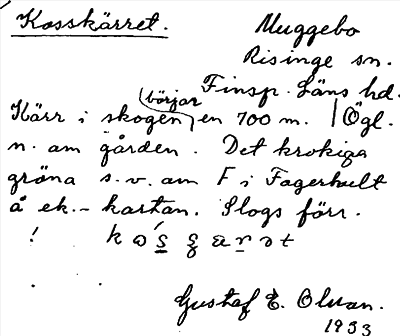 Kosskärret.
Muggebo
Risinge sn.
Finsp. Läns hd.
Kärr i skogen, börjar en 700 m. | Ögl.
n. om gården. Det krokiga
gröna s.v. om F i Fagerhult
å ek. - kartan. Slogs förr.
Gustaf E. Olsson.
1933